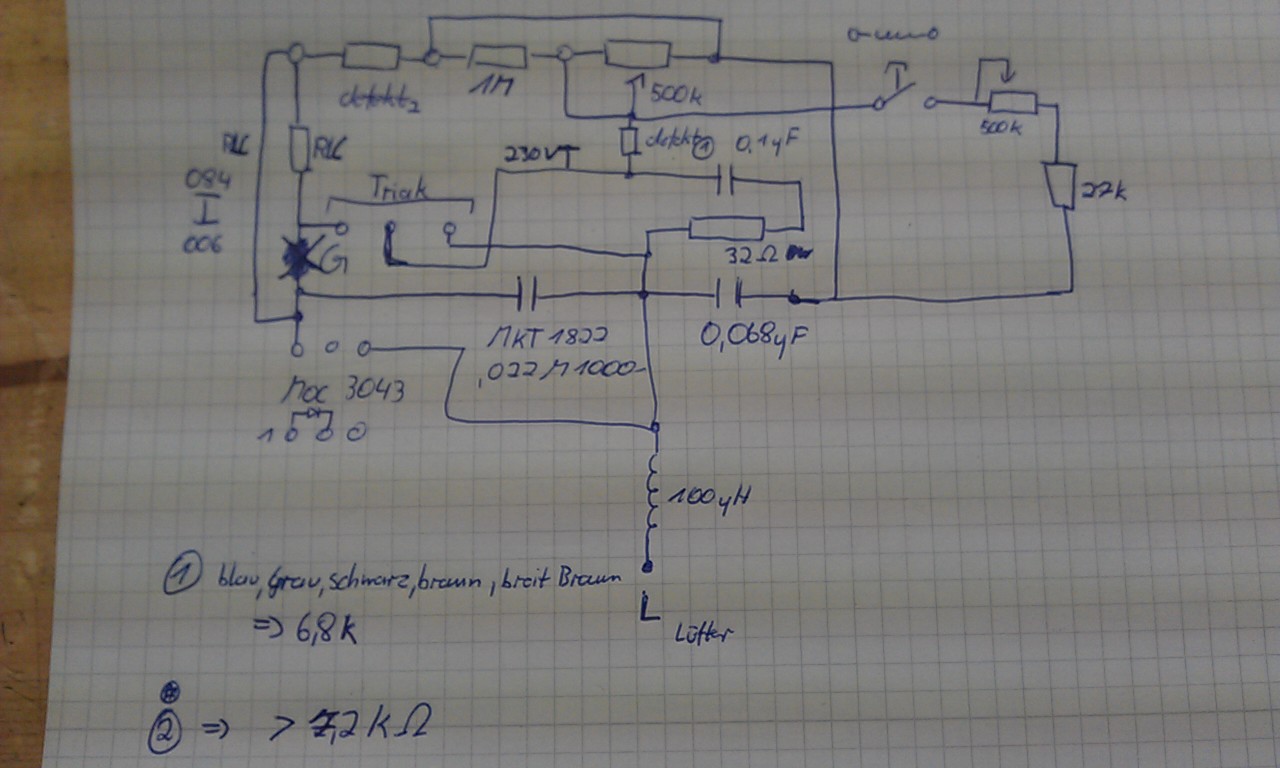 defekt2
1M
500k
500k
RLC
RLC
defekt ①
0,1µF
230V
Triak
084
I
006
22k
G
32Ω
MKT 1822
,022 M 1000-
0,068µF
Moc 3043
1
100µH
① blau, Grau, schwarz, braun, breit Braun
=> 6,8k
L
Lüfter
② => > 7,2kΩ